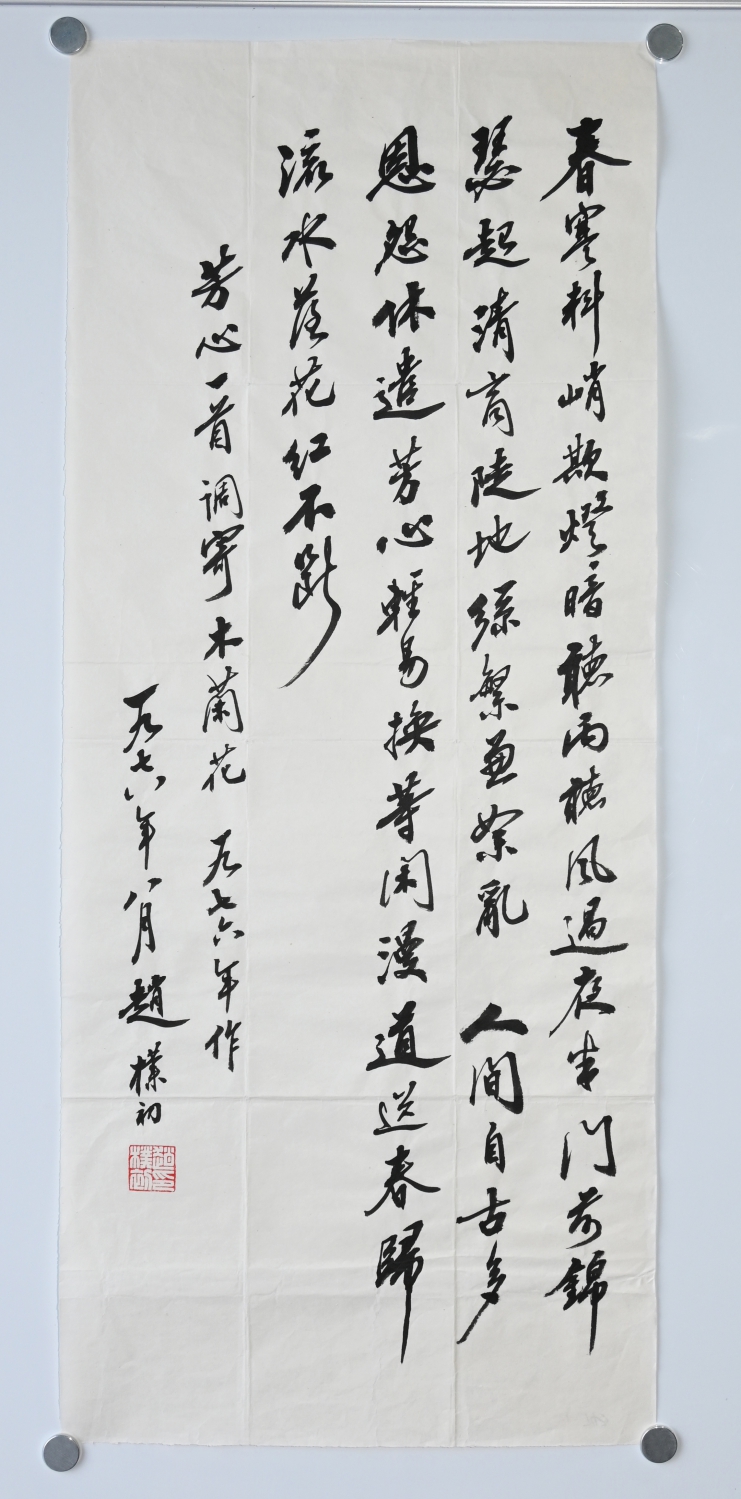 春寒料峭欺燈暗聽雨聽風過夜半門前錦
瑟起清商陡地絲繁兼絮亂 人間自古多
恩怨休遣芳心輕易換等閑漫道送春歸
流水落花紅不斷
芳心一首调寄木蘭花 一九七六年作
一九七六年八月趙樸初
趙樸初印